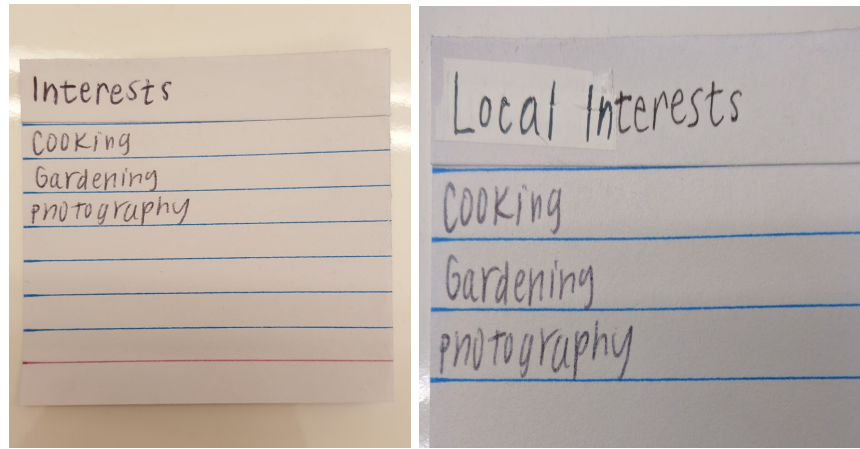 Interests
Cooking
Gardening
photography
Local Interests
Cooking
Gardening
photography